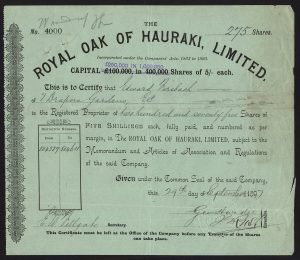 THE
No. 4000
275 Shares.
ROYAL OAK OF HAURAKI, LIMITED.
Incorporated under the Companies' Acts, 1862 to 1893.
£200,000 in 1,000,000
CAPITAL £100,000, in 400,000 Shares of 5/- each.
This is to Certify that Edward
of 7 Drapers Gardens, EC
is the Registered Proprietor of two hundred and seventy five Shares of
FIVE SHILLINGS each, fully paid, and numbered as per
margin, in The ROYAL OAK OF HAURAKI, LIMITED, subject to the
Memorandum and Articles of Association and Regulations
of the said Company.
Given under the Common Seal of the said Company,
this 29th day of September 1897
Secretary.
This Certificate must be left at the Office of the Company before any Transfer of the Shares
can take place.